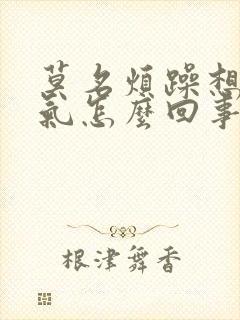 莫名煩躁想
氣怎麼回事
根津舞香